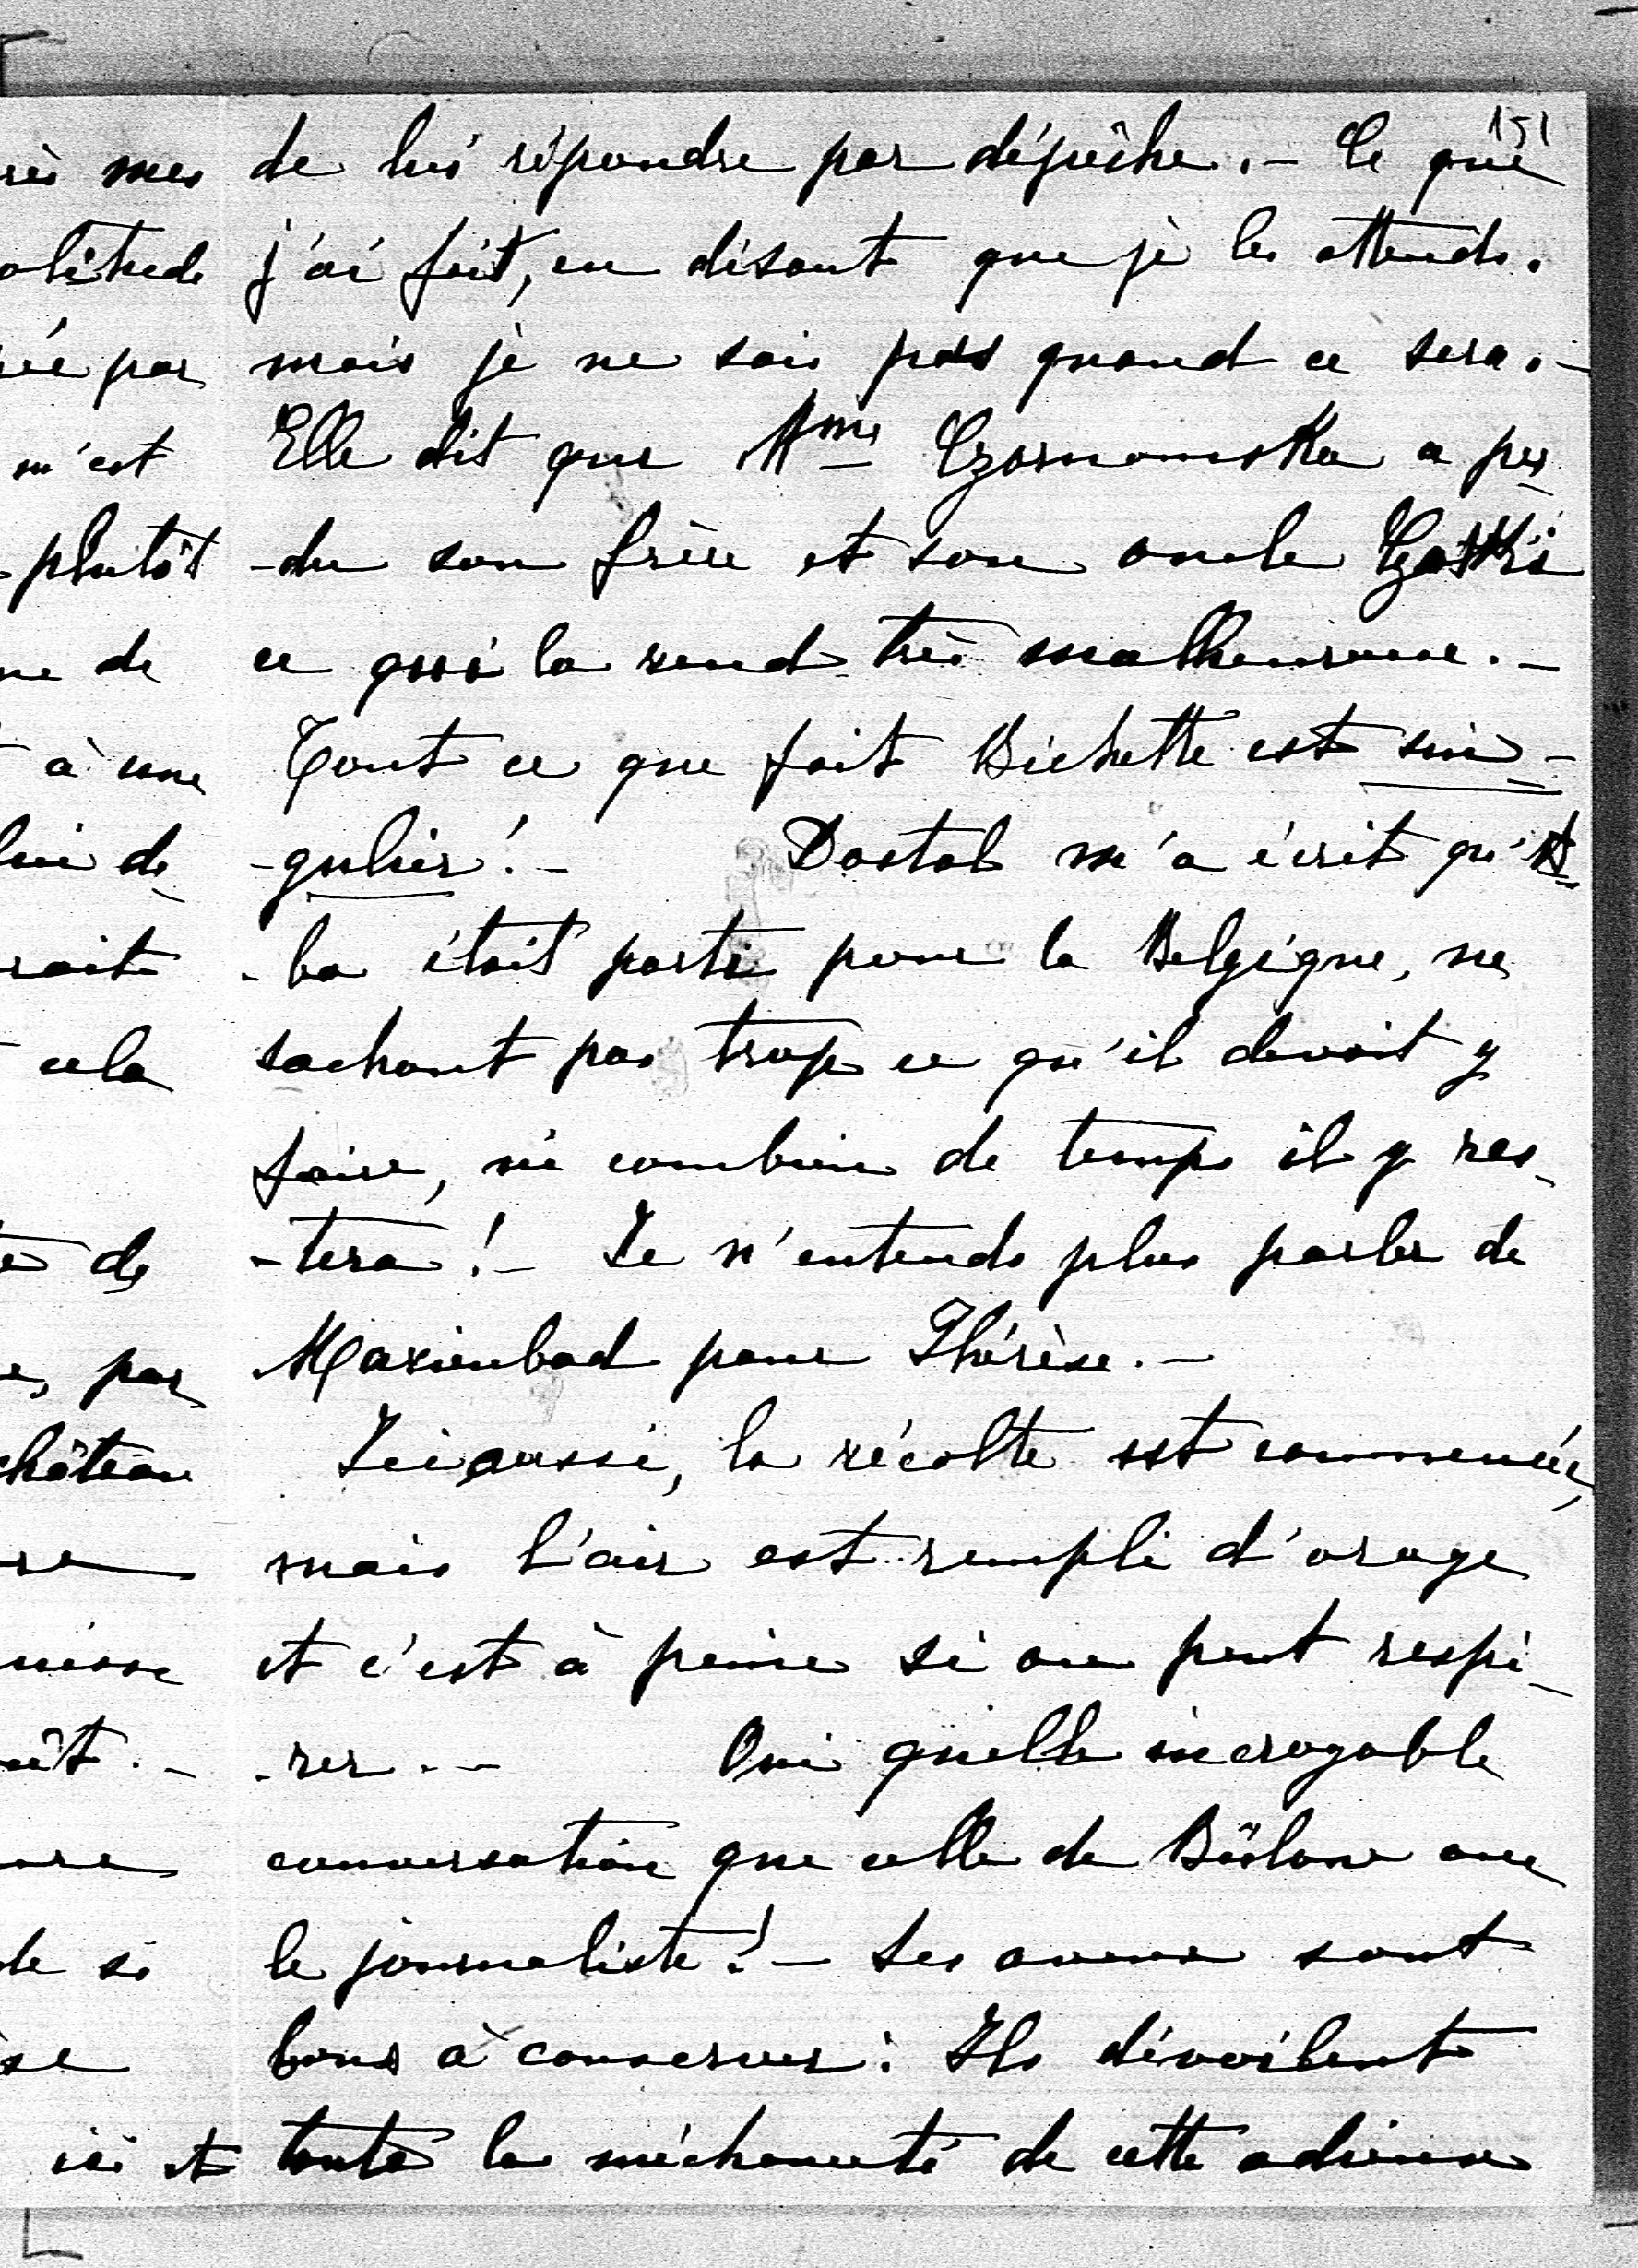 151
de lui répondre par dépêche. - Ce que
j'ai fait, en disant que je les attends.
mais je ne sais pas quand ce sera. -
Elle dit que Mme Czosnowska a per
-du son frère et son oncle
ce qui la rend très malheureuse. -
Tout ce que fait Bichette est sin-
-gulier! - Dostal m'a écrit qu'A-
-ba était parti pour la Belgique, ne
sachant pas trop ce qu'il devait y
faire, ni combien de temps il y res-
-tera! - Je n'entends plus parler de
Marienbad pour Thérèse. -
Ici aussi, la récolte est commencée,
mais l'air est rempli d'orage
et c'est à peine si on peut respi-
-rer. - Oui quelle incroyable
conversation que celle de Bülow avec
le journaliste! - Ses aveux sont
bons à conserver: Ils dévoilent
toute la méchanceté de cette odieuse
rès mes
olitude
rée par
m'est
plutôt
ne de
à une
lui de
rait
cela
de
e, par
château
re
uisse
de si
ici et